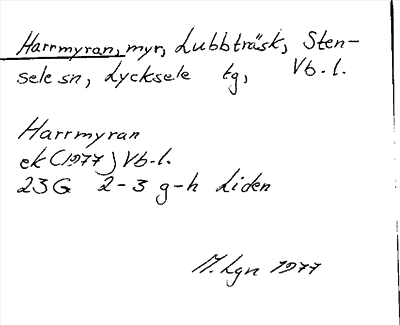 Harrmyran, myr, Lubbträsk, Sten-
sele sn, Lycksele tg, Vb. l.
Harrmyran
ek (1977) Vb. l.
23G 2-3 g-h Liden
M. Lgn 1977